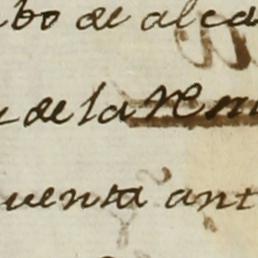 bo de alca
de la Ren
uenta ant